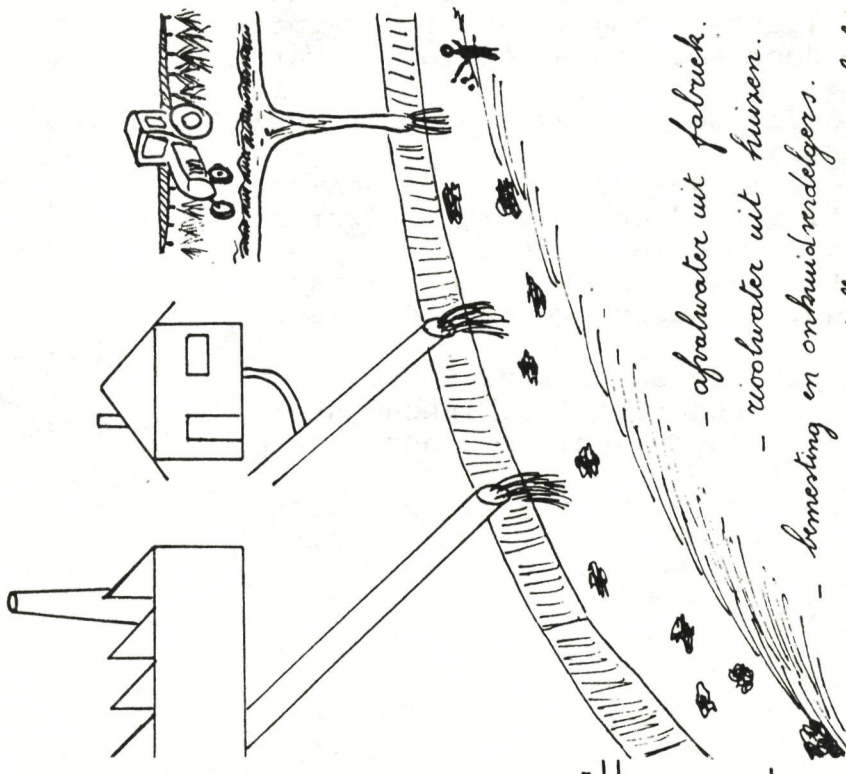 - afvalwater uit fabriek.
- rioolwater uit huizen.
- bemesting en onkruidverdelgers.